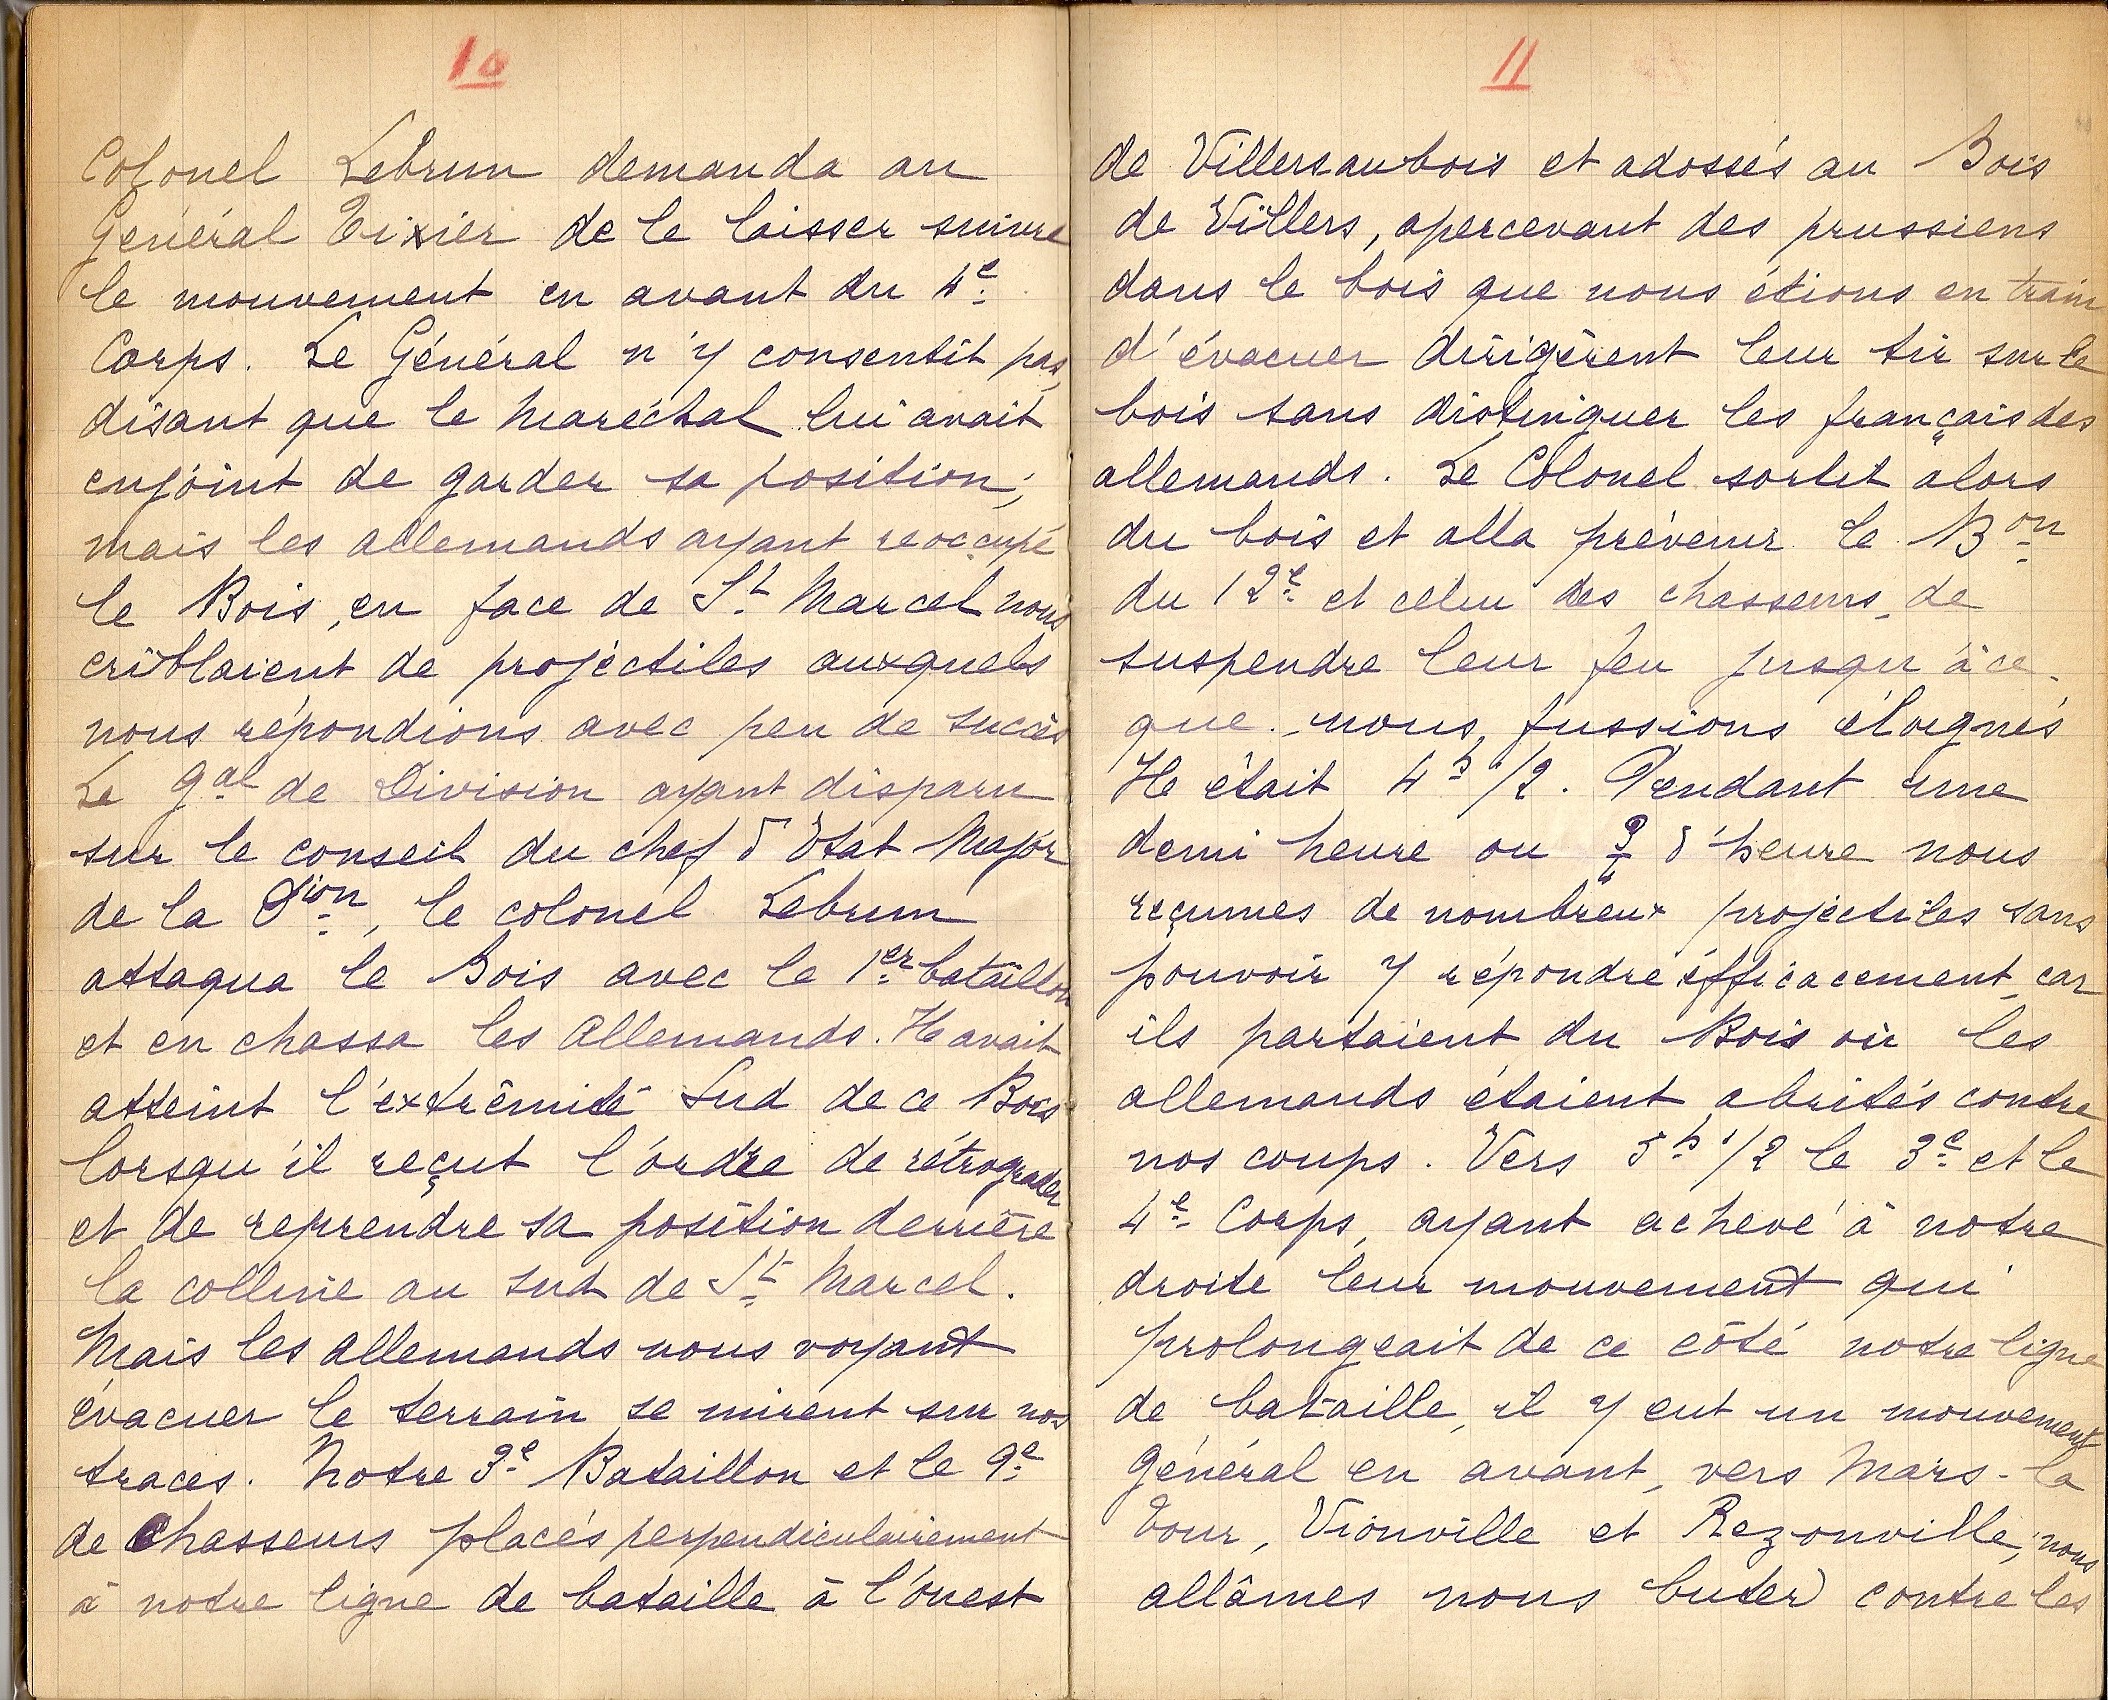 10
Colonel Lebrun demanda au
Général Tixier de le laisser suivre
le mouvement en avant du 4e
Corps. Le Général n'y consentit pas,
disant que le Maréchal lui avait
enjoint de garder sa position;
mais les allemands ayant reoccupé
le Bois, en face de St Marcel nous
criblaient de projectiles auxquels
nous répondions avec peu de succès
Le Gal de Division ayant disparu
sur le conseil du chef d'Etat Major
de la Dion, le colonel Lebrun
attaqua le Bois avec le 1er bataillon
et en chassa les Allemands. Il avait
atteint l'extrêmité Sud de ce Bois
lorsqu'il reçut l'ordre de rétrograder
et de reprendre sa position derrière
la colline au sud de St Marcel.
Mais les Allemands nous voyant
évacuer le terrain se mirent sur nos
traces. Notre 3e Bataillon et le 9e
de Chasseurs placés perpendiculairement
à notre ligne de bataille à l'ouest
11
de Villersaubois et adossés au Bois
de Villers, apercevant des prussiens
dans le bois que nous étions en train
d'évacuer dirigèrent leur tir sur le
bois sans distinguer les français des
allemands. Le Colonel sortit alors
du bois et alla prévenir le Bon
du 12e et celui des chasseurs, de
suspendre leur feu jusqu'à ce
que nous fussions éloignés
Il était 4h 1/2. Pendant une
demi heure ou 3/4 d'heure nous
reçumes de nombreux projectiles sans
pouvoir y répondre éfficacement, car
ils partaient du Bois où les
allemands étaient abrités contre
nos coups. Vers 5h 1/2 le 3e et le
4e Corps, ayant achevé à notre
droite leur mouvement qui
prolongeait de ce côté notre ligne
de bataille, il y eut un mouvement
Général en avant, vers Mars-la
Tour, Vionville et Rezonville, nous
allâmes nous buter contre les